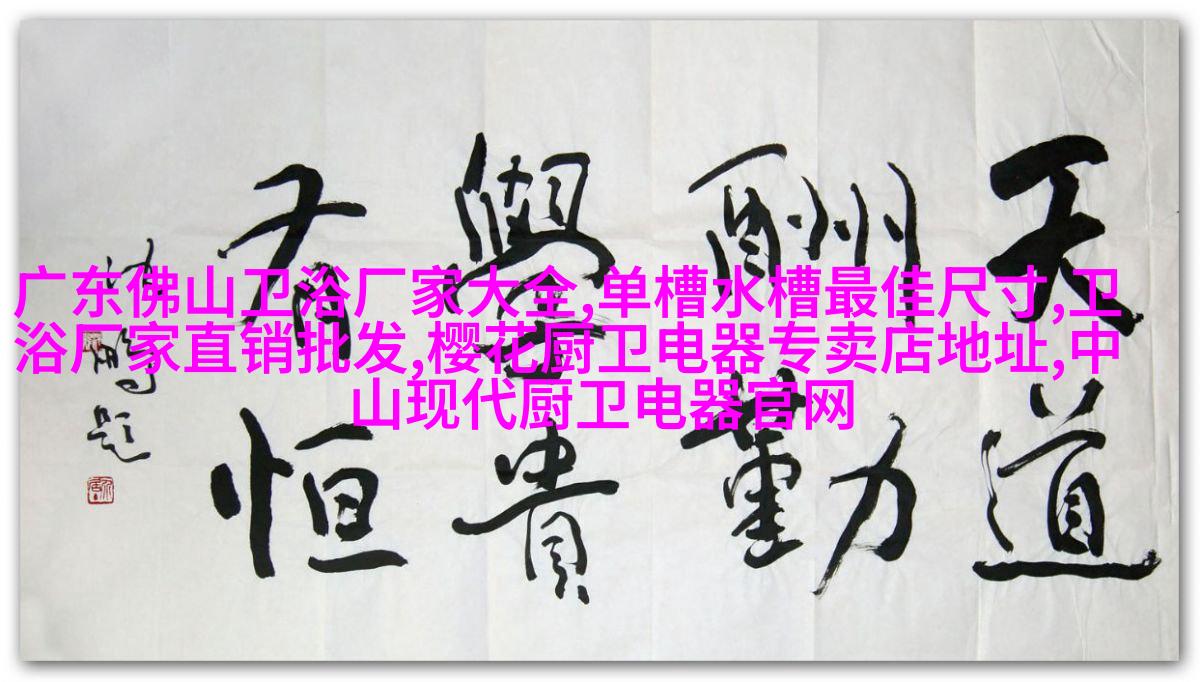 广东佛山卫浴厂家大全,单槽水槽最佳尺寸,卫
浴厂家直销批发,樱花厨卫电器专卖店地址,中
山现代厨卫电器官网
天道
酬勤
學貴
有恒
沈鹏题